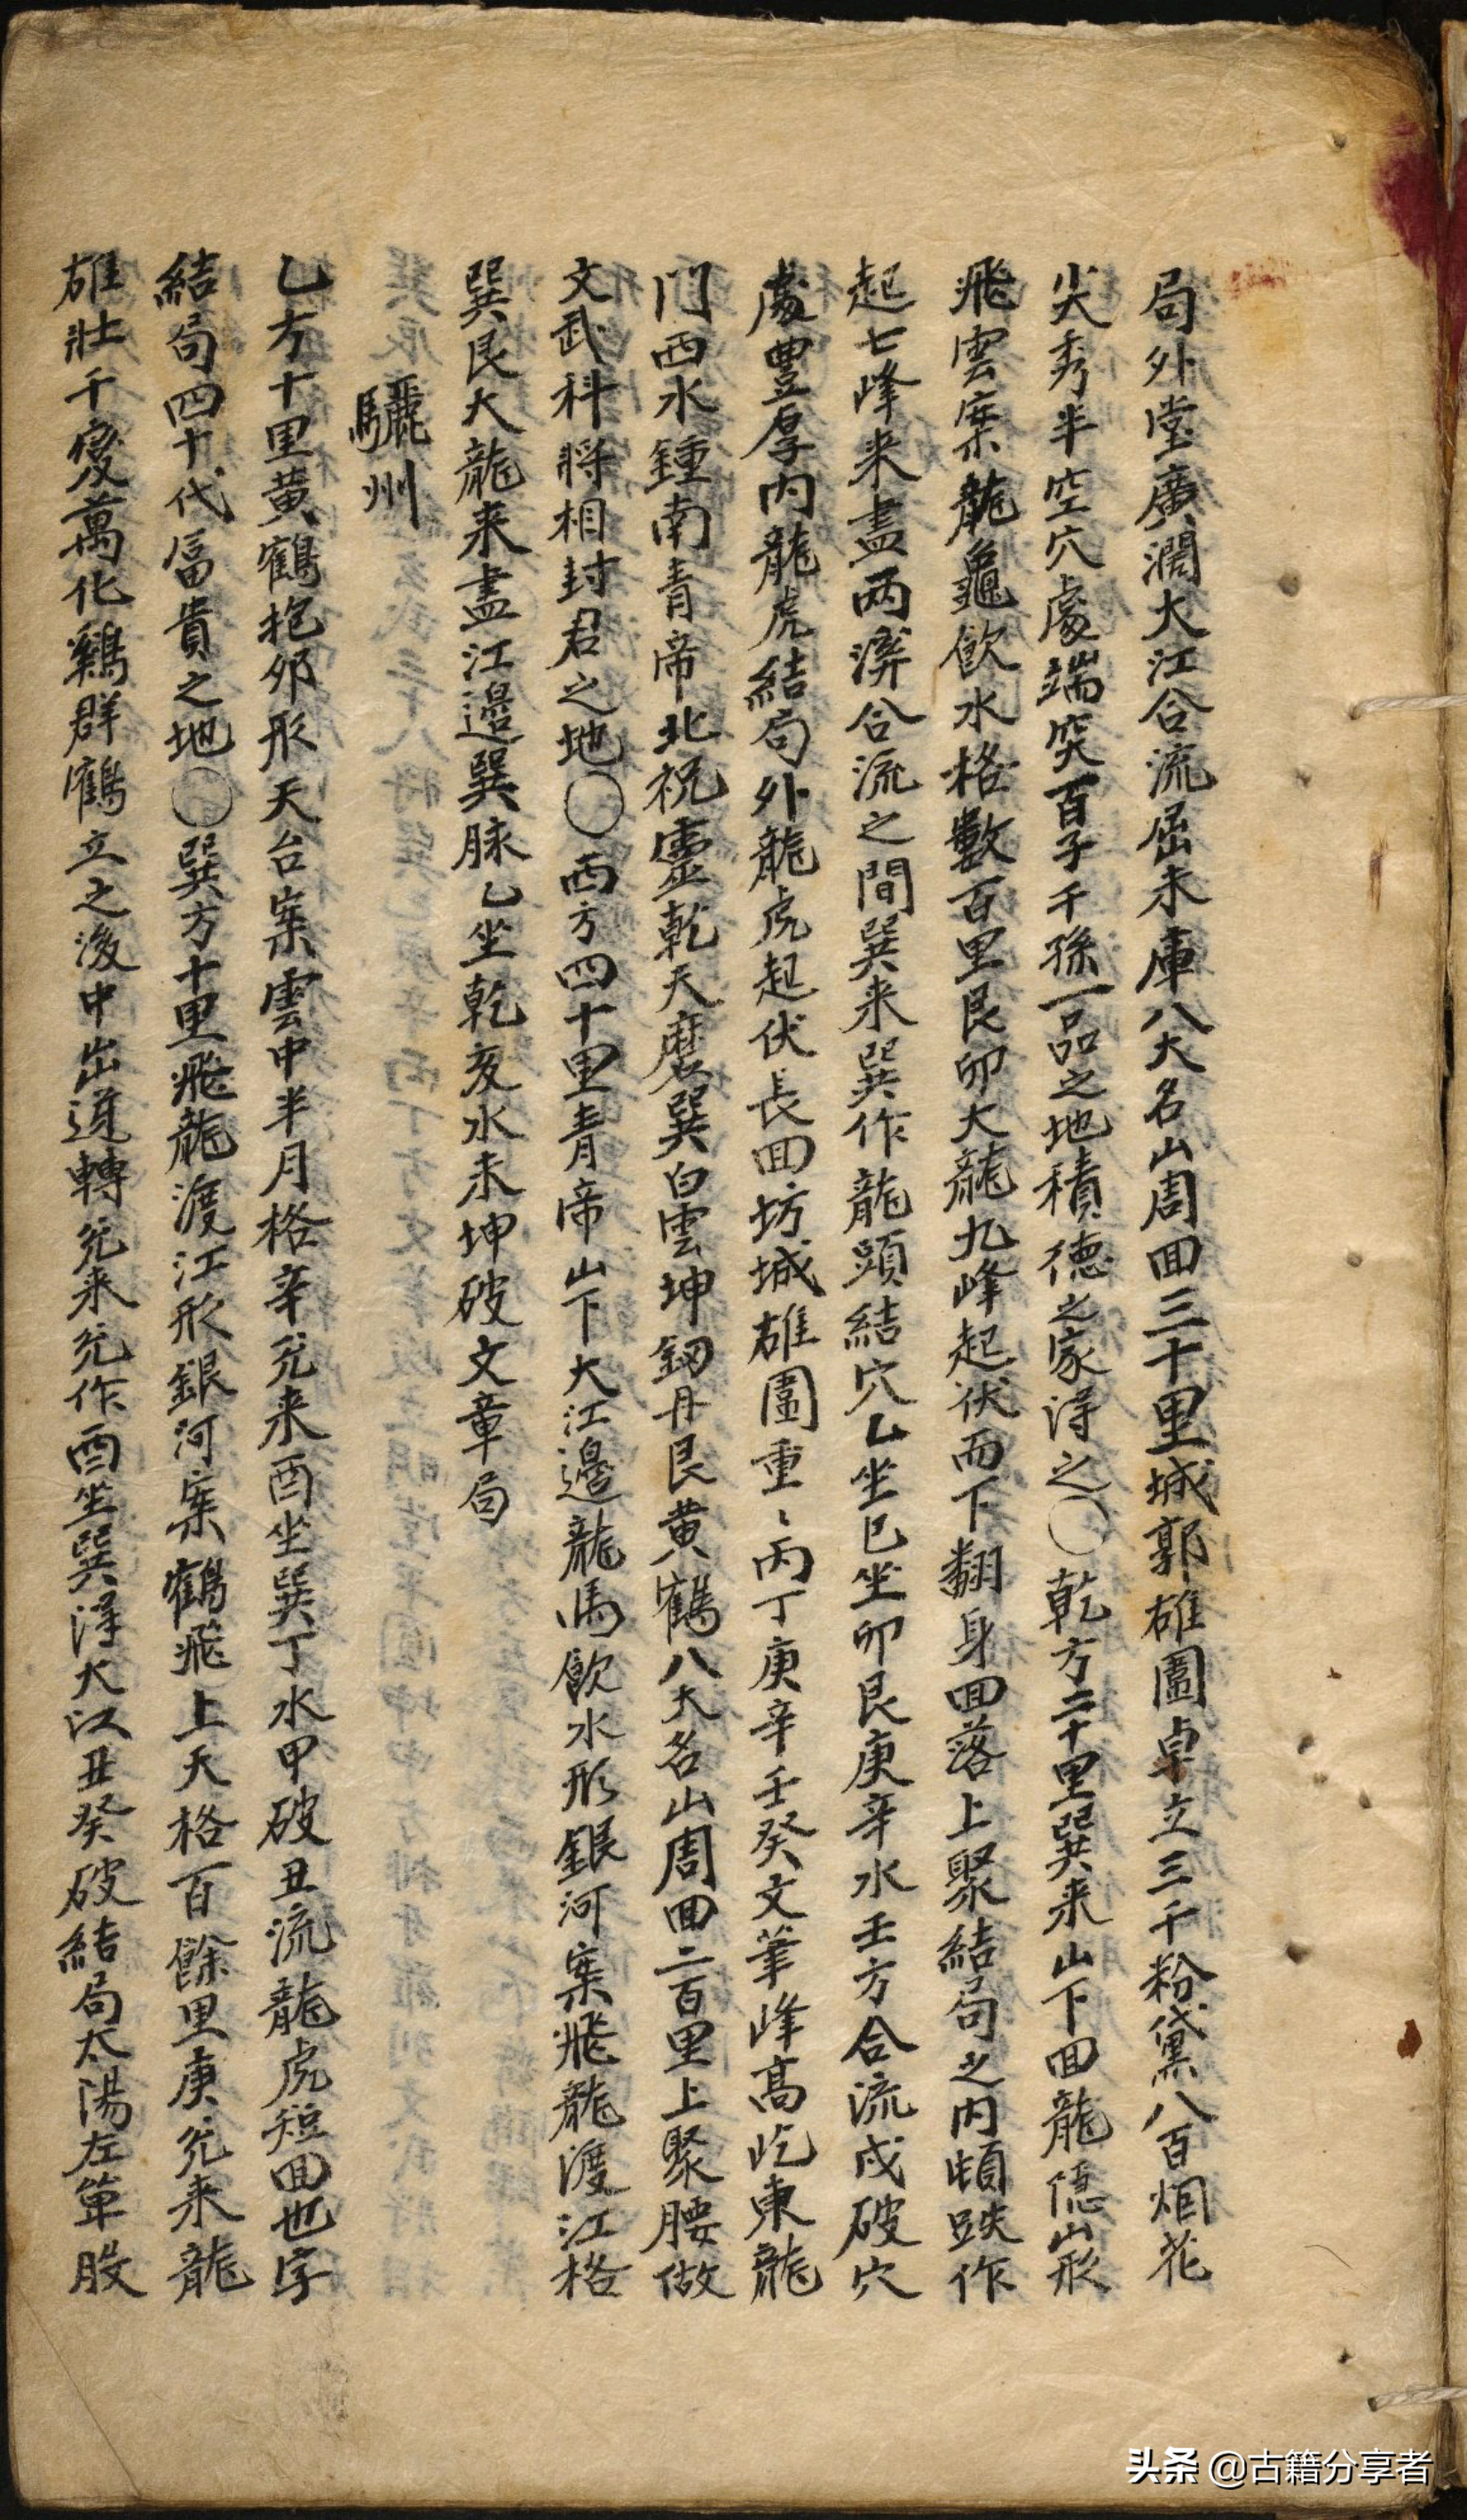 局外堂廣濶大江合流屈未庫八大名山周回三十里城郭雄圖卓立三千粉黛八百烟花
尖秀半空穴處端突百子千孫一品之地積德之家得之○乾方二十里巽来山下回龍隱山形
飛雲案龍龜飮水格數百里艮卯大龍九峰起伏而下翻身回落上聚結局之内頓跌作
起七峰来盡两合流之間巽来巽作龍頭結穴乙坐巳坐卯艮庚辛水壬方合流戌破穴
處豊厚内龍虎結局外龍虎起伏長回坊城雄圖重〻丙丁庚辛壬癸文筆峰高屹東龍
門西水鍾南青帝北祝靈乾天磨巽白雲坤釼丹艮黄鶴八大名山周回二百里上聚腰做
文武科將相封君之地○西方四十里青帝山下大江邉龍馬飮水形銀河案飛龍渡江格
巽艮大龍来盡江邉巽脉乙坐乾亥水未坤破文章局
驪州
乙方十里黄鶴抱卵形天台案雲中半月格辛兌来酉坐巽丁水甲破丑流龍虎短回也字
結局四十代富貴之地○巽方十里飛龍渡江形銀河案鶴飛上天格百餘里庚兌来龍
雄壯千變萬化鷄群鶴立之後中出逆轉兌来兌作酉坐巽得大江丑癸破結局太陽左單股
头条 @古籍分享者